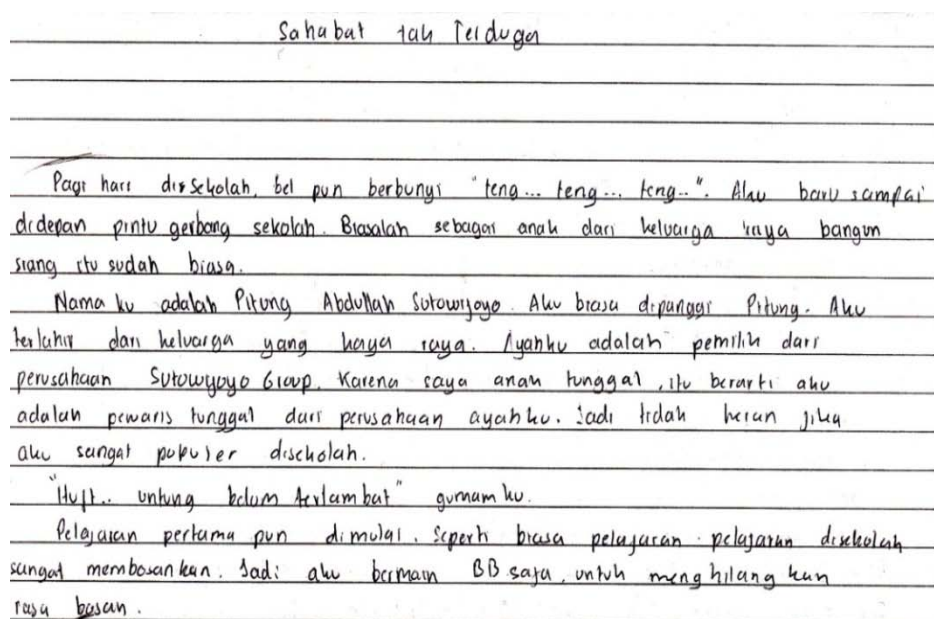 Sahabat tak Terduga
Pagi hari disekolah, bel pun berbunyi "teng... teng... teng..". Aku baru sampai
didepan pintu gerbang sekolah. Biasalah sebagai anak dari keluarga kaya bangun
siang itu sudah biasa.
Nama ku adalah Pitung Abdullah Sutowijoyo. Aku biasa dipanggi Pitung. Aku
terlahir dari keluarga yang kaya raya. Ayahku adalah pemilik dari
perusahaan Sutowijoyo Group. Karena saya anak tunggal, itu berarti aku
adalah pewaris tunggal dari perusahaan ayahku. Jadi tidak heran jika
aku sangat populer disekolah.
"Huft.. untung belum terlambat" gumam ku.
Pelajaran pertama pun dimulai. Seperti biasa pelajaran-pelajaran disekolah
sangat membosankan. Jadi aku bermain BB saja, untuk menghilangkan
rasa bosan.